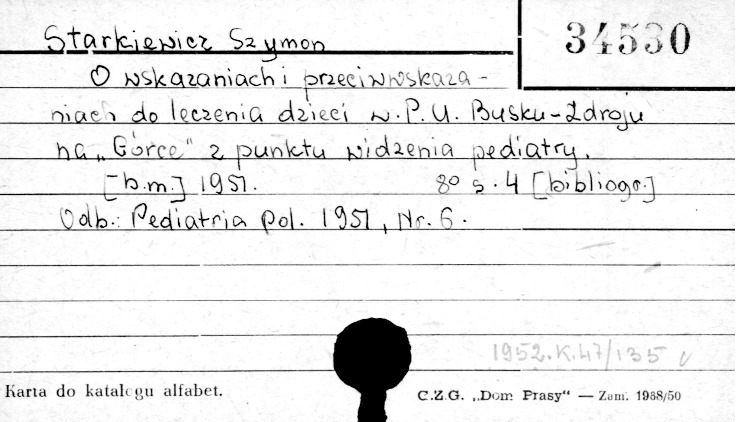 Starkiewicz Szymon
34530
O wskazaniach i przeciwwskaza-
niach do leczenia dzieci w P. U. Busku-Zdroju
na „Górce" z punktu widzenia pediatry.
[b.m.] 1951. 8° s. 4 [bibliogr.]
Odb.: Pediatria pol. 1951, Nr. 6.
1952.K.47/135
Karta do katalogu alfabet.
C.Z.G. „Dom Prasy" — Zam. 1968/50